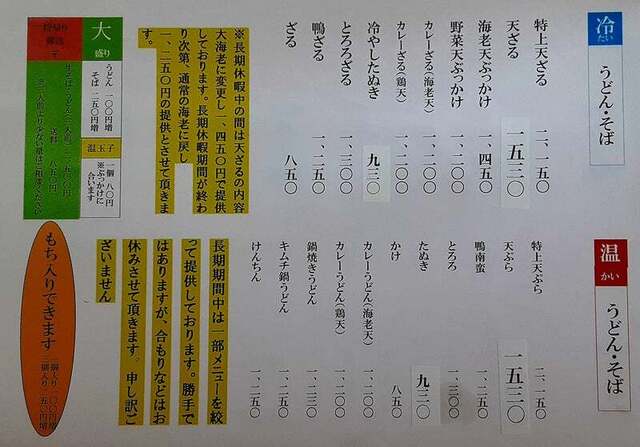 冷たい うどん・そば
特上天ざる 二、一五〇
天ざる 一五三〇
海老天ぶっかけ 一、四五〇
野菜天ぶっかけ 一、二〇〇
カレーざる（海老天） 一、二〇〇
カレーざる（鶏天） 一、二〇〇
冷やしたぬき 九三〇
とろろざる 一、三〇〇
鴨ざる 一、二五〇
ざる 八五〇
※長期休暇中の間は天ざるの内容
大海老に変更し一、四五〇円で提供
しております。長期休暇期間が終わ
り次第、通常の海老に戻し
一、二五〇円の提供とさせて頂きま
す。
大盛り
うどん 一〇〇円増
そば 二五〇円増
温玉子
一個 八〇円
※ぶっかけに
合います
温かい うどん・そば
特上天ぷら 二、一五〇
天ぷら 一五三〇
鴨南蛮 一、二五〇
とろろ 一、三〇〇
たぬき 九三〇
かけ 八五〇
カレーうどん（海老天） 一、二〇〇
カレーうどん（鶏天） 一、二〇〇
鍋焼きうどん 一、二五〇
キムチ鍋うどん 一、二五〇
けんちん 一、二五〇
長期期間中は一部メニューを絞
って提供しております。勝手で
はありますが、合もりなどはお
休みさせて頂きます。申し訳ご
ざいません
もち入りできます